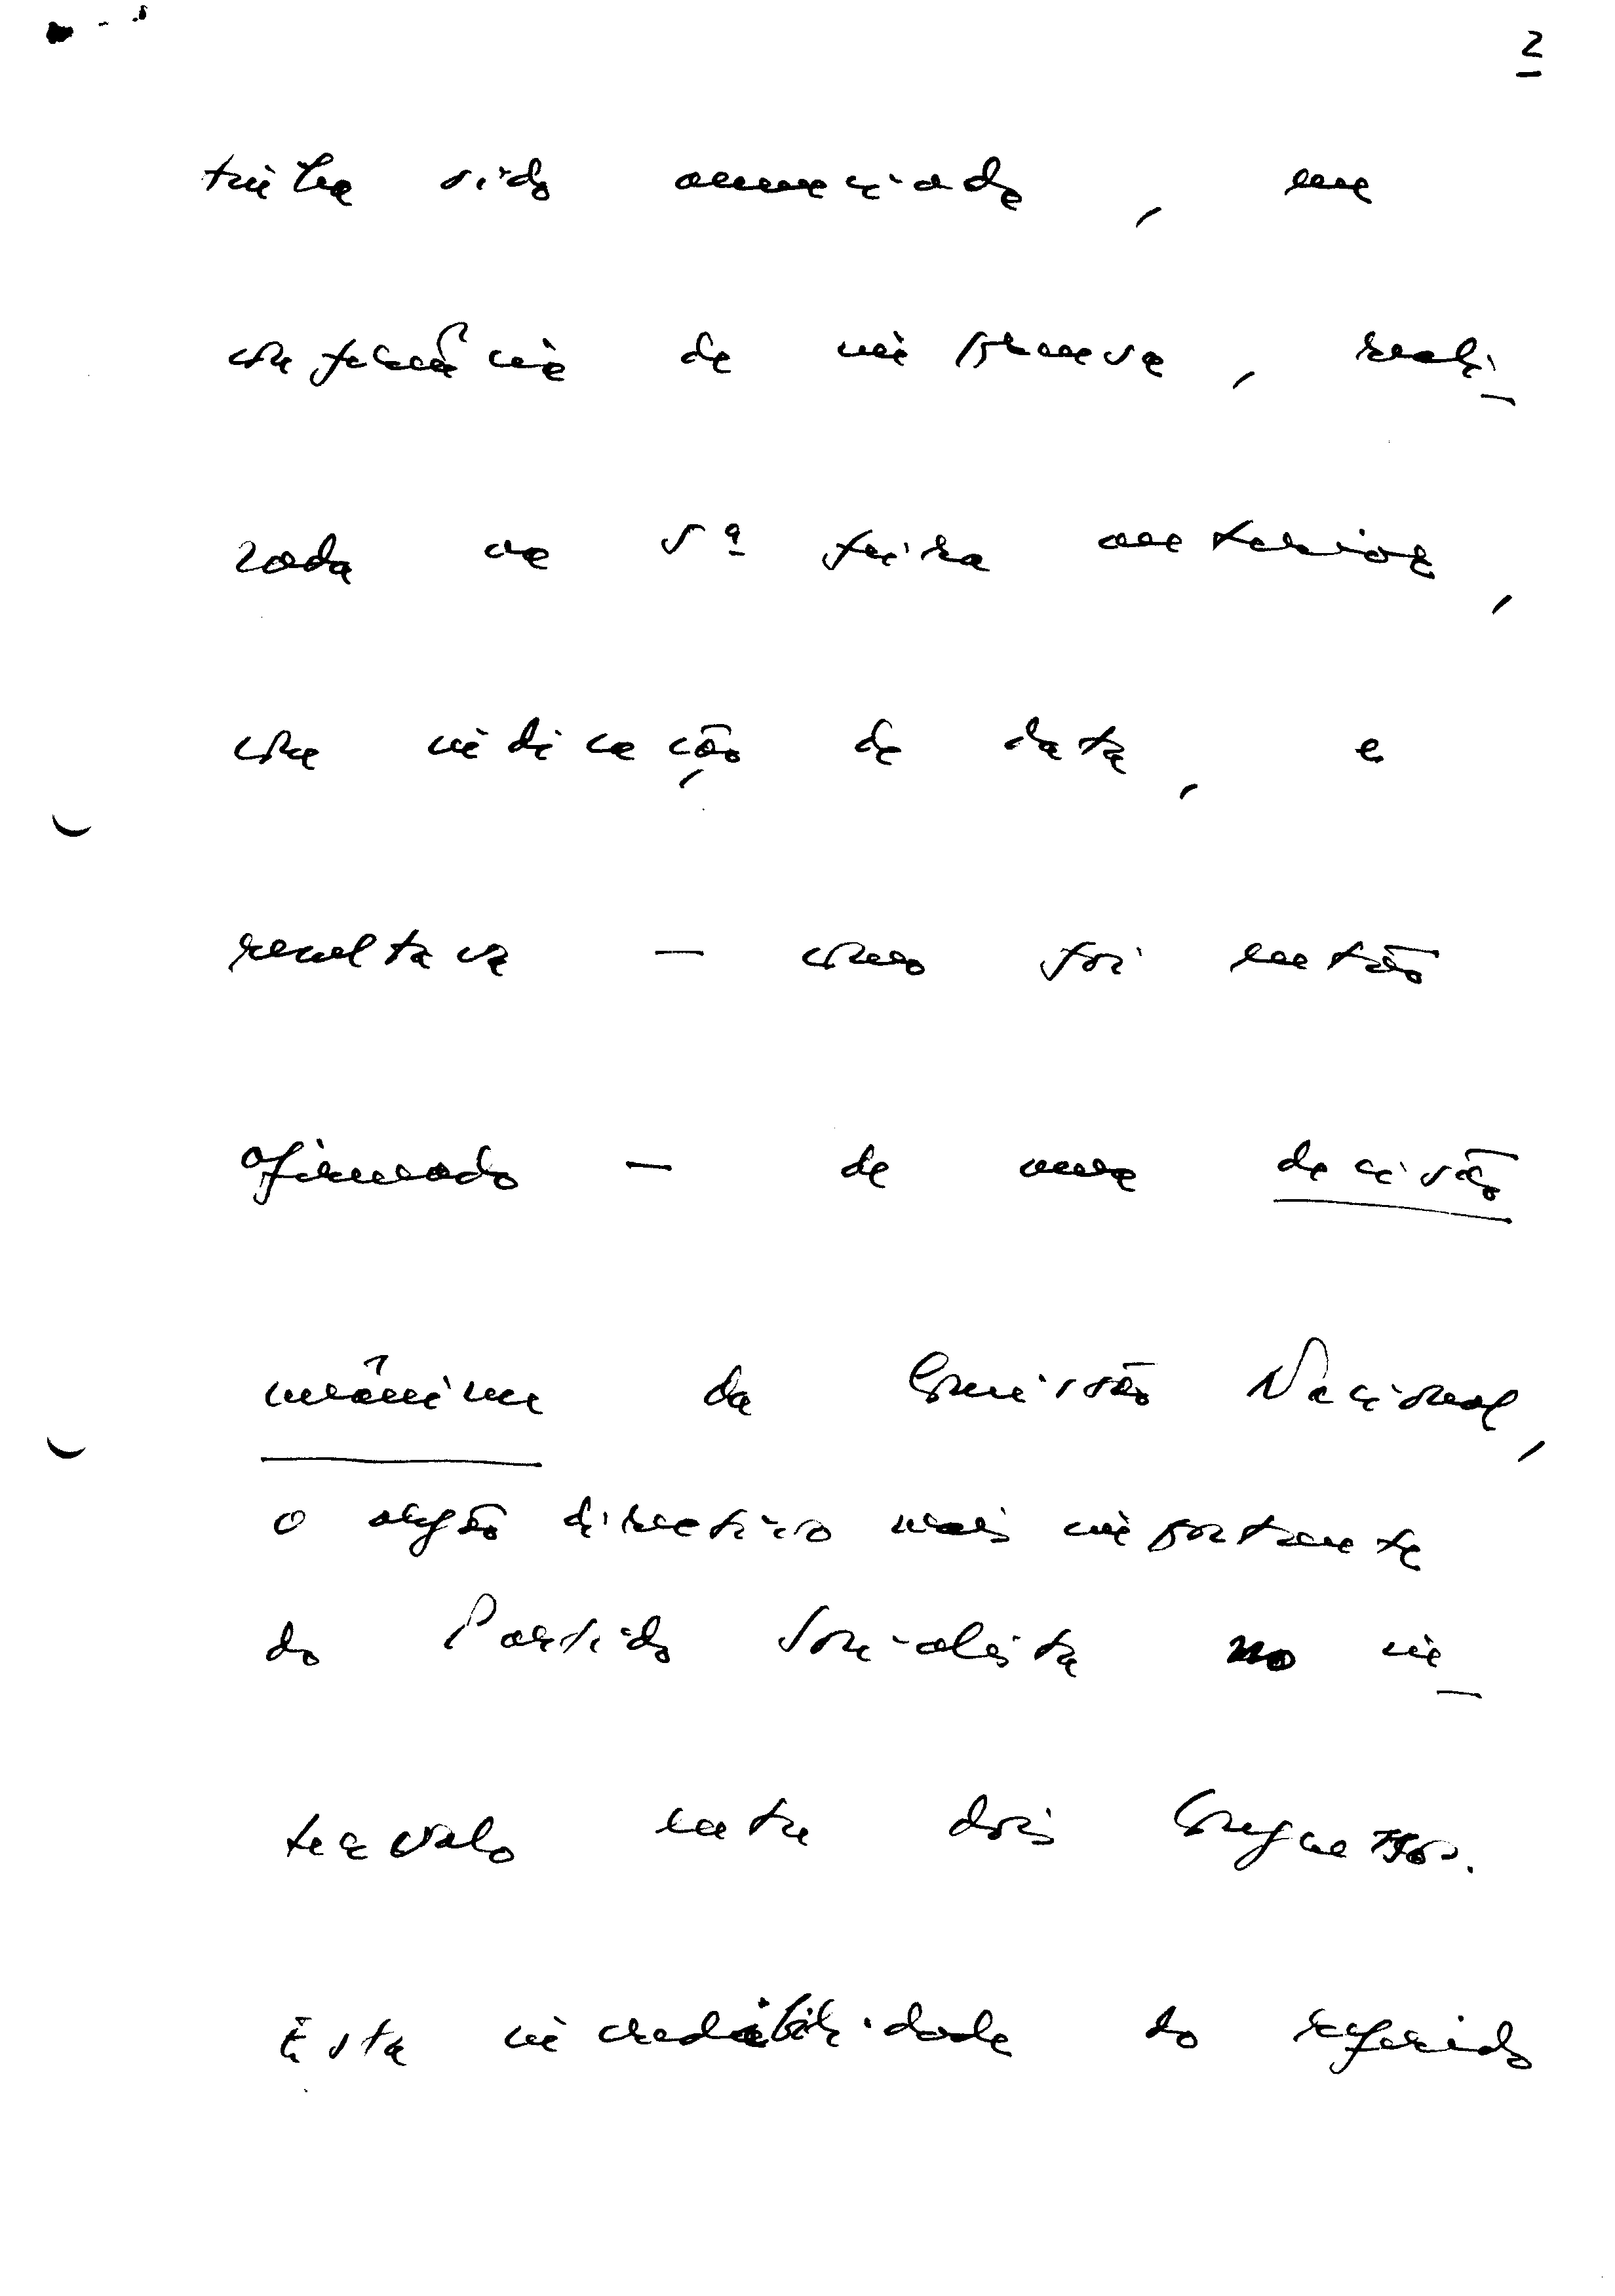 2
tinha sido anunciada, em
conferência de imprensa, reali-
zada na 5ª feira anterior,
com indicação de data, e
resultava — como foi então
afirmado — de uma decisão
unânime da Comissão Nacional,
o orgão directivo mais importante
do Partido Socialista no in-
tervalo entre dois Congressos.
Esta incredibilidade do referido